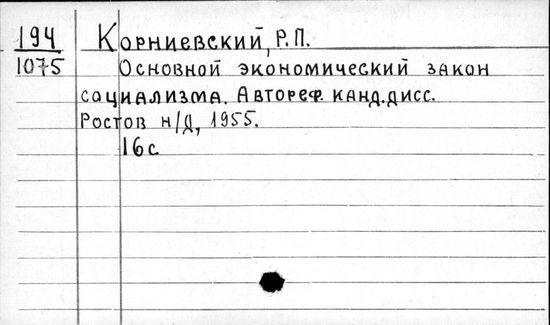 194 Корниевский, Р.П.
1075 Основной экономический закон
социализма. Автореф. канд. дисс.
Ростов н/Д, 1955.
16 с